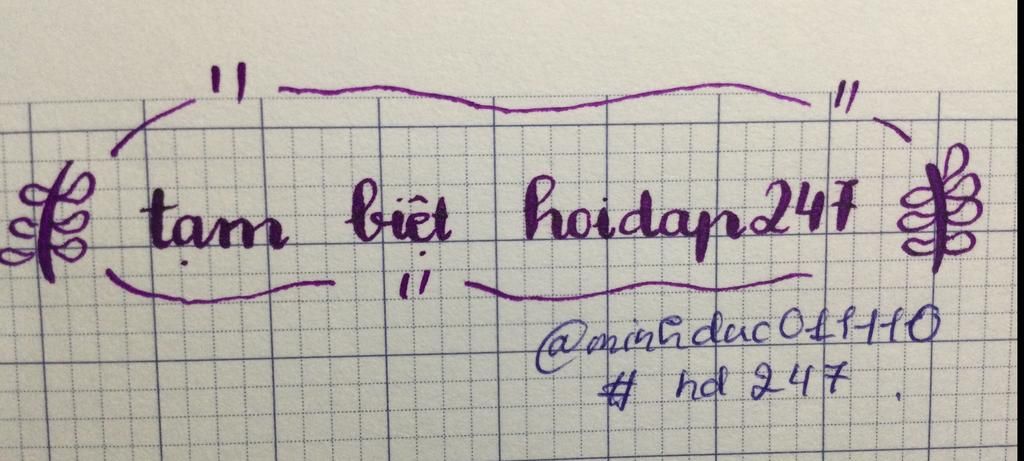 tạm biệt hoidap247
@minhduc011110
# hd 247.